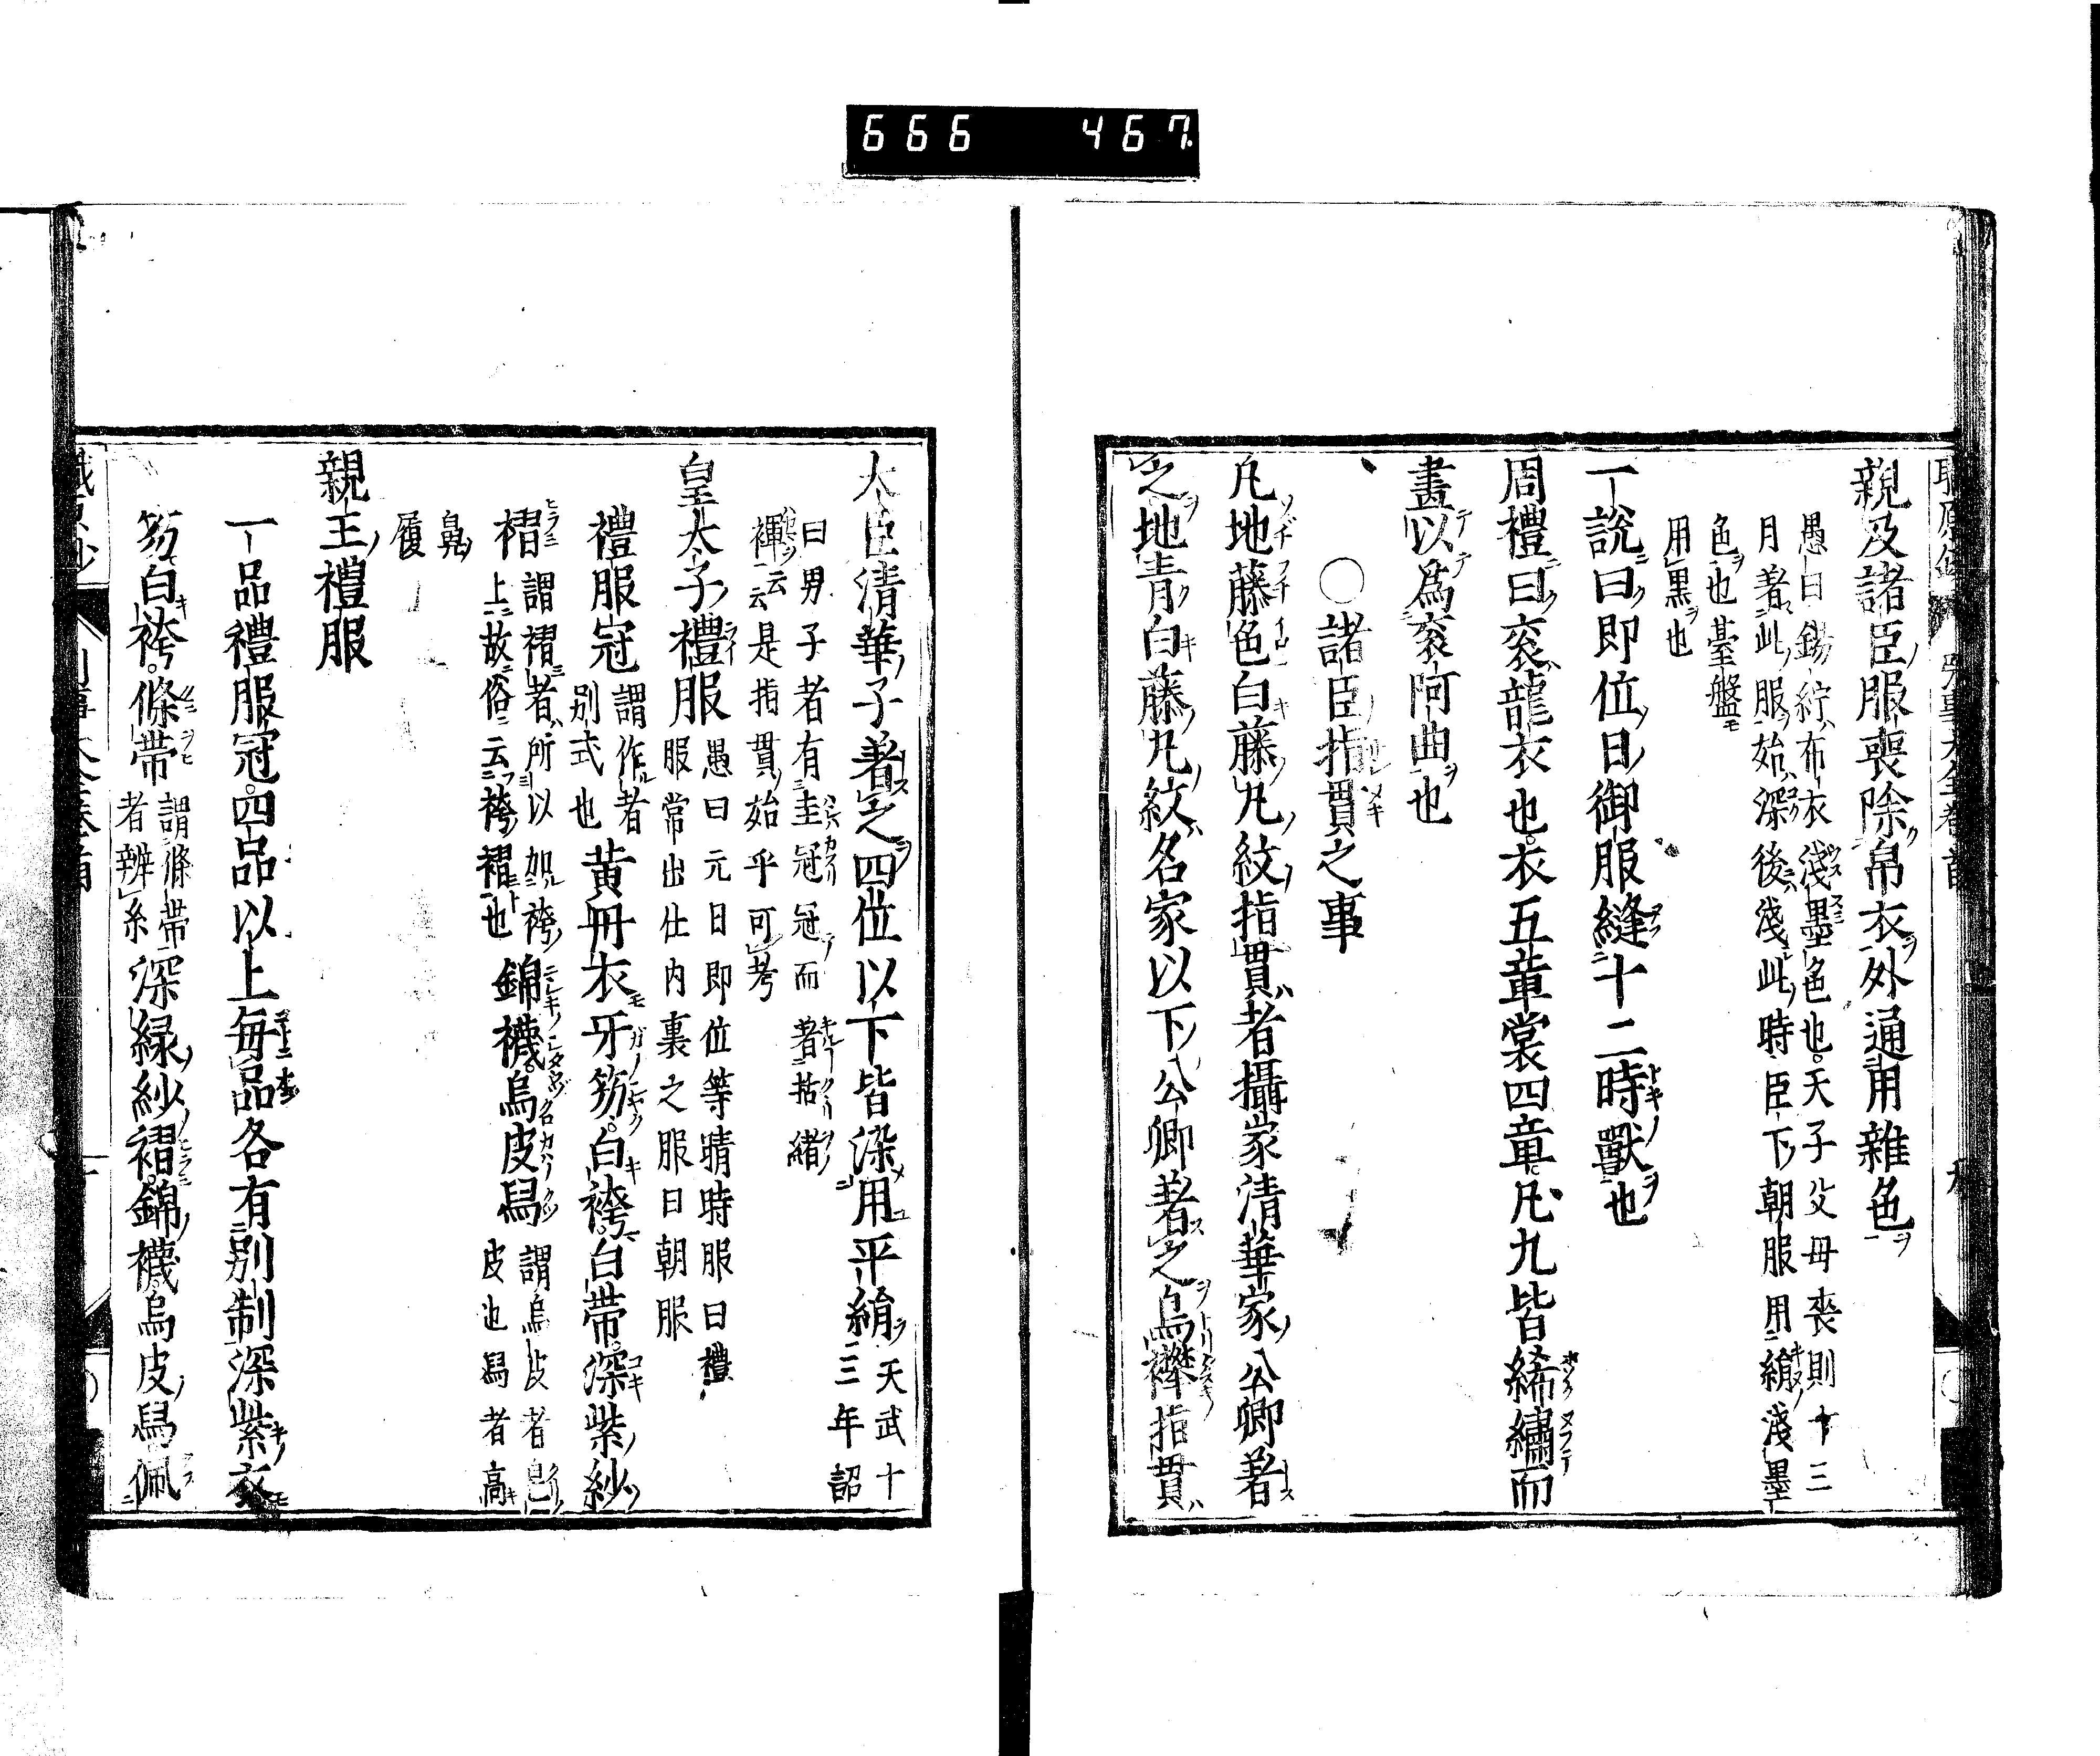 666 467
親及諸臣服喪除帛衣外通用雜色
愚曰錫紵布衣淺墨色也天子父母喪則十三
月著此服始深後淺此時臣下朝服用繒淺墨
色也臺盤
用黒也
一說曰即位日御服縫十二時獸也
周禮曰袞龍衣也衣五章裳四章凡九皆絺繡而
畫以爲袞阿曲也
○諸臣指貫之事
凡地藤色白藤丸紋指貫者攝家清華家公卿著
之地青白藤丸紋名家以下公卿著之鳥襷指貫
大臣清華子著之四位以下皆染用平絹
天武十
三年詔
曰男子者有圭冠冠而著括緒
褌云云是指貫始乎可考
皇太子禮服
愚曰元日即位等晴時服曰禮
服常出仕内裏之服曰朝服
禮服冠
謂作者
別式也
黄丹衣牙笏白袴白帶深紫紗
褶
謂褶者所以加袴
上故俗云袴褶也
錦襪烏皮舄
謂烏皮者皂
皮也舄者高
鼻
履
親王禮服
一品禮服冠四品以上每品各有別制深紫衣
笏白袴條帶
謂條帶
者辨糸
深緑紗褶錦襪烏皮舄佩